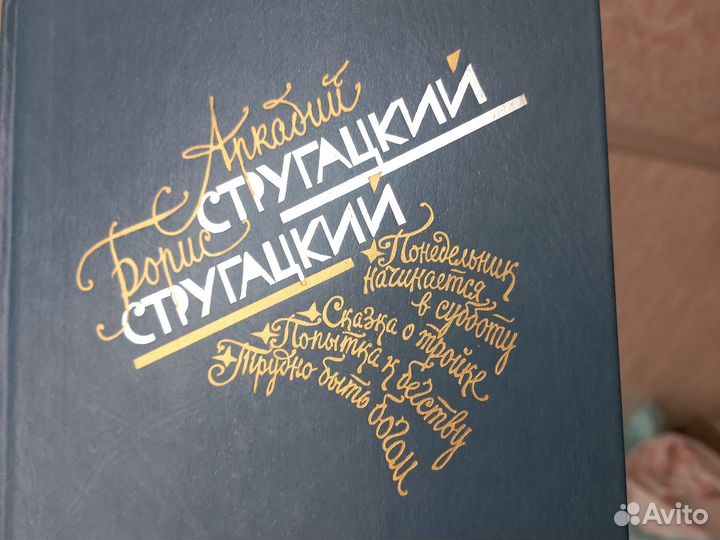 Аркадий
СТРУГАЦКИЙ
Борис
СТРУГАЦКИЙ
Понедельник
начинается
в субботу
Сказка о тройке
Попытка к бегству
Трудно быть богом
Avito